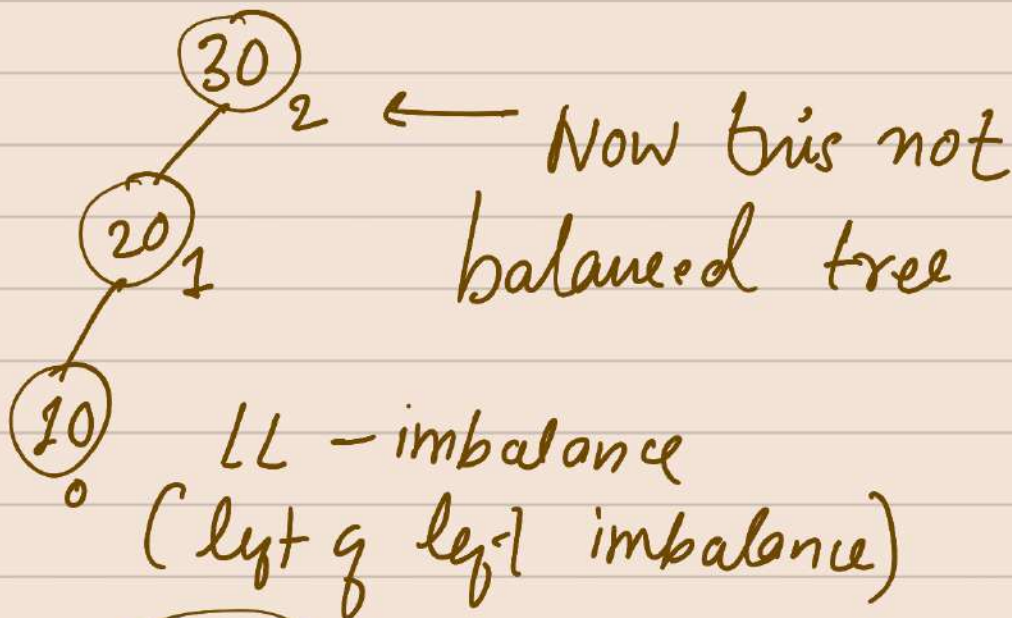 30
2 ← Now this not
20
1
balanced tree
10
0
LL - imbalance
(left of left imbalance)